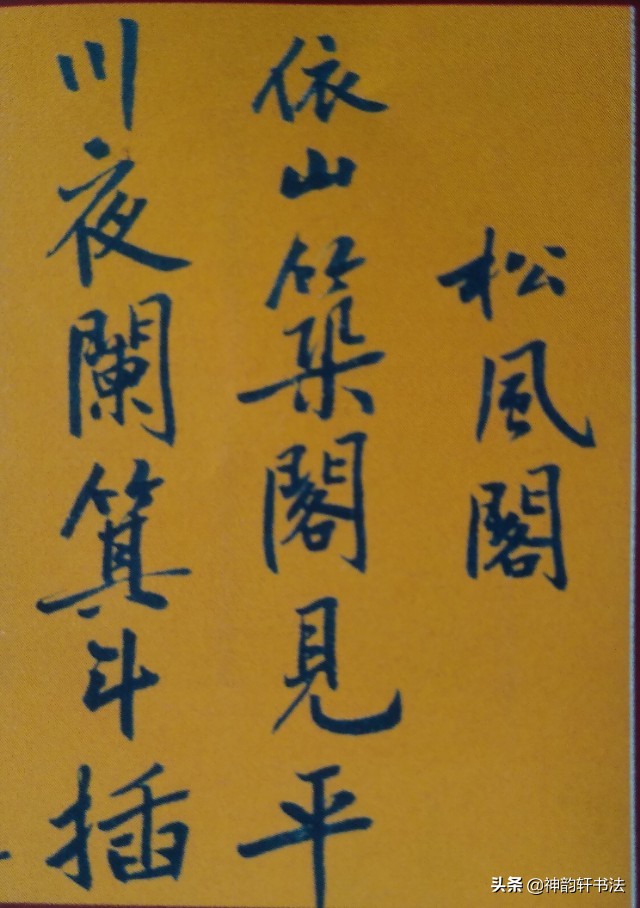 松風閣
依山築閣見平
川夜闌箕斗插
头条 @神韵轩书法